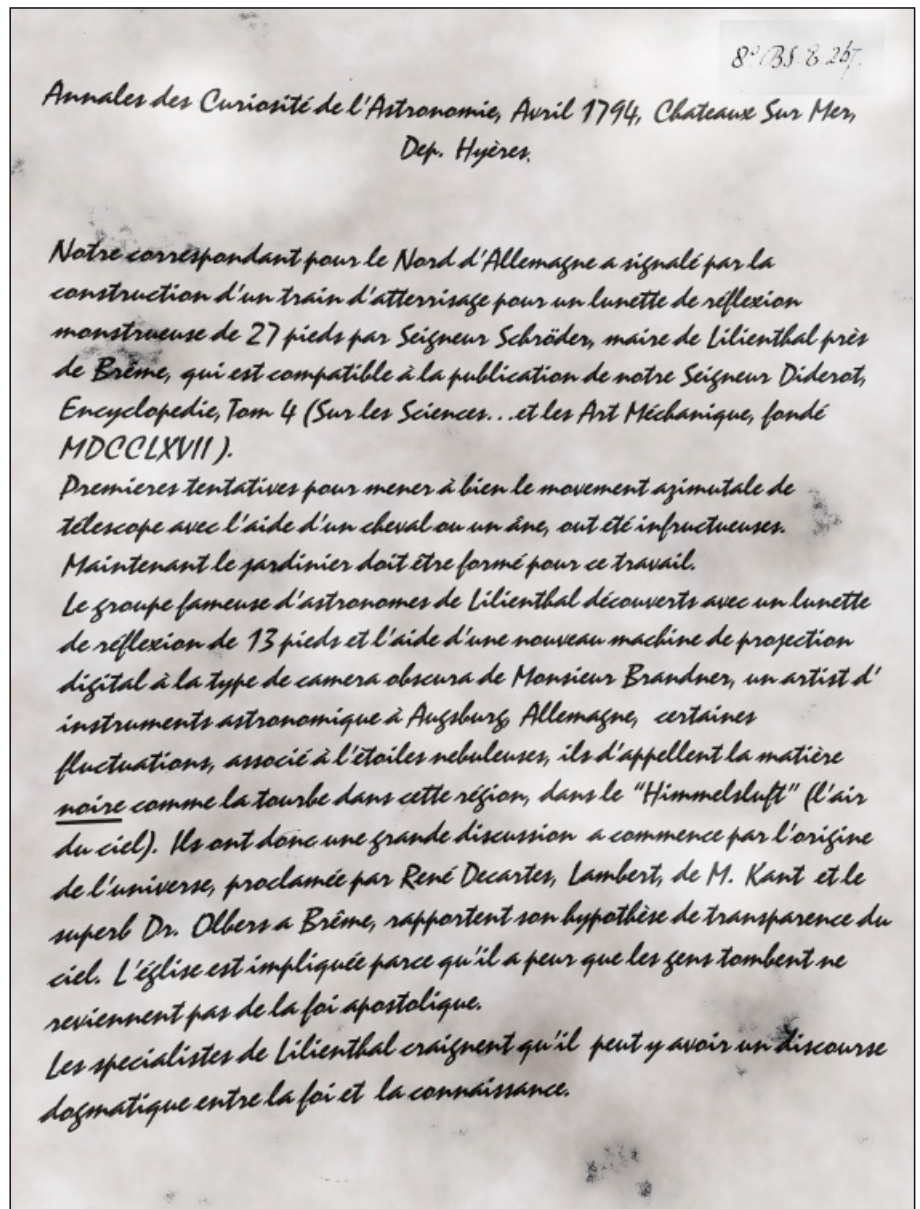 8° BS 8. 267.
Annales des Curiosité de l'Astronomie, Avril 1794, Chateaux Sur Mer,
Dep. Hyères.
Notre correspondant pour le Nord d'Allemagne a signalé par la
construction d'un train d'atterrisage pour un lunette de réflexion
monstrueuse de 27 pieds par Seigneur Schröder, maire de Lilienthal près
de Brême, qui est compatible à la publication de notre Seigneur Diderot,
Encyclopedie, Tom 4 (Sur les Sciences...et les Art Méchanique, fondé
MDCCLXVII ).
Premieres tentatives pour mener à bien le movement azimutale de
télescope avec l'aide d'un cheval ou un âne, out été infructueuses.
Maintenant le jardinier doit être formé pour ce travail.
Le groupe fameuse d'astronomes de Lilienthal découverts avec un lunette
de réflexion de 13 pieds et l'aide d'une nouveau machine de projection
digital à la type de camera obscura de Monsieur Brandner, un artist d'
instruments astronomique à Augsburg, Allemagne, certaines
fluctuations, associé à l'étoiles nebuleuses, ils d'appellent la matière
noire comme la tourbe dans cette région, dans le "Himmelsluft" (l'air
du ciel). Ils ont donc une grande discussion a commence par l'origine
de l'universe, proclamée par René Decartes, Lambert, de M. Kant et le
superb Dr. Olbers a Brême, rapportent son hypothèse de transparence du
ciel. L'église est impliquée parce qu'il a peur que les gens tombent ne
reviennent pas de la foi apostolique.
Les specialistes de Lilienthal craignent qu'il peut y avoir un discourse
dogmatique entre la foi et la connaissance.